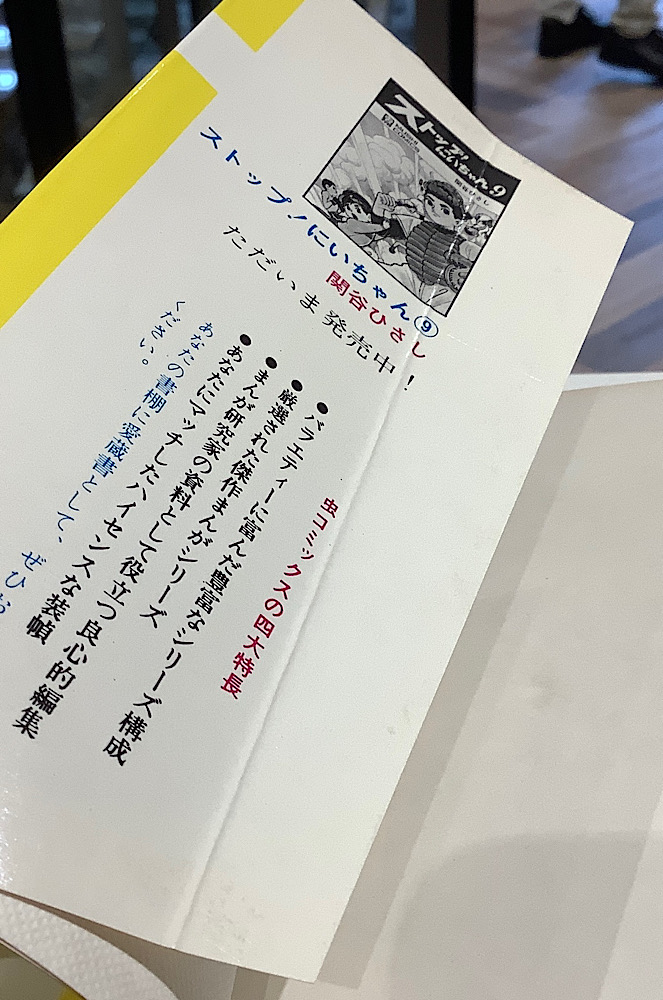 ストップ!
にいちゃん9
関谷ひさし
ストップ!にいちゃん⑨
関谷ひさし
ただいま発売中!
虫コミックスの四大特長
●バラエティーに富んだ豊富なシリーズ構成
●厳選された傑作まんがシリーズ
●まんが研究家の資料として役立つ良心的編集
●あなたにマッチしたハイセンスな装幀
あなたの書棚に愛蔵書として、ぜひお
ください。